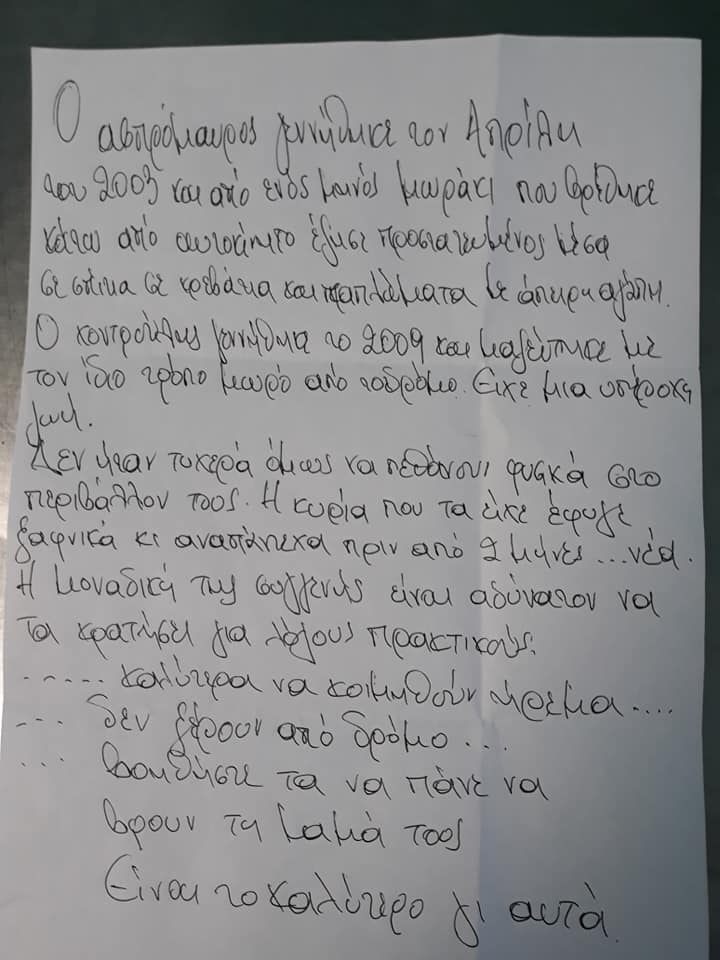 Ο ασπρόμαυρος γεννήθηκε τον Απρίλη
του 2003 και από ενός μηνός μωράκι που βρέθηκε
κάτω από αυτοκίνητο έζησε προστατευμένος μέσα
σε σπίτια σε κρεβάτια και παπλώματα με άπειρη αγάπη.
Ο κοντρούλης γεννήθηκε το 2009 και μαζεύτηκε με
τον ίδιο τρόπο μωρό από το δρόμο. Είχε μια υπέροχη
ζωή.
Δεν ήταν τυχερά όμως να πεθάνουν φυσικά στο
περιβάλλον τους. Η κυρία που τα είχε έφυγε
ξαφνικά κι αναπάντεχα πριν από 2 μήνες ... νέα.
Η μοναδική της συγγενής είναι αδύνατον να
τα κρατήσει για λόγους πρακτικούς.
..... καλύτερα να κοιμηθούν ήρεμα ....
... δεν ξέρουν από δρόμο ...
... βοηθήστε τα να πάνε να
βρουν τη μαμά τους
Είναι το καλύτερο γι αυτά.